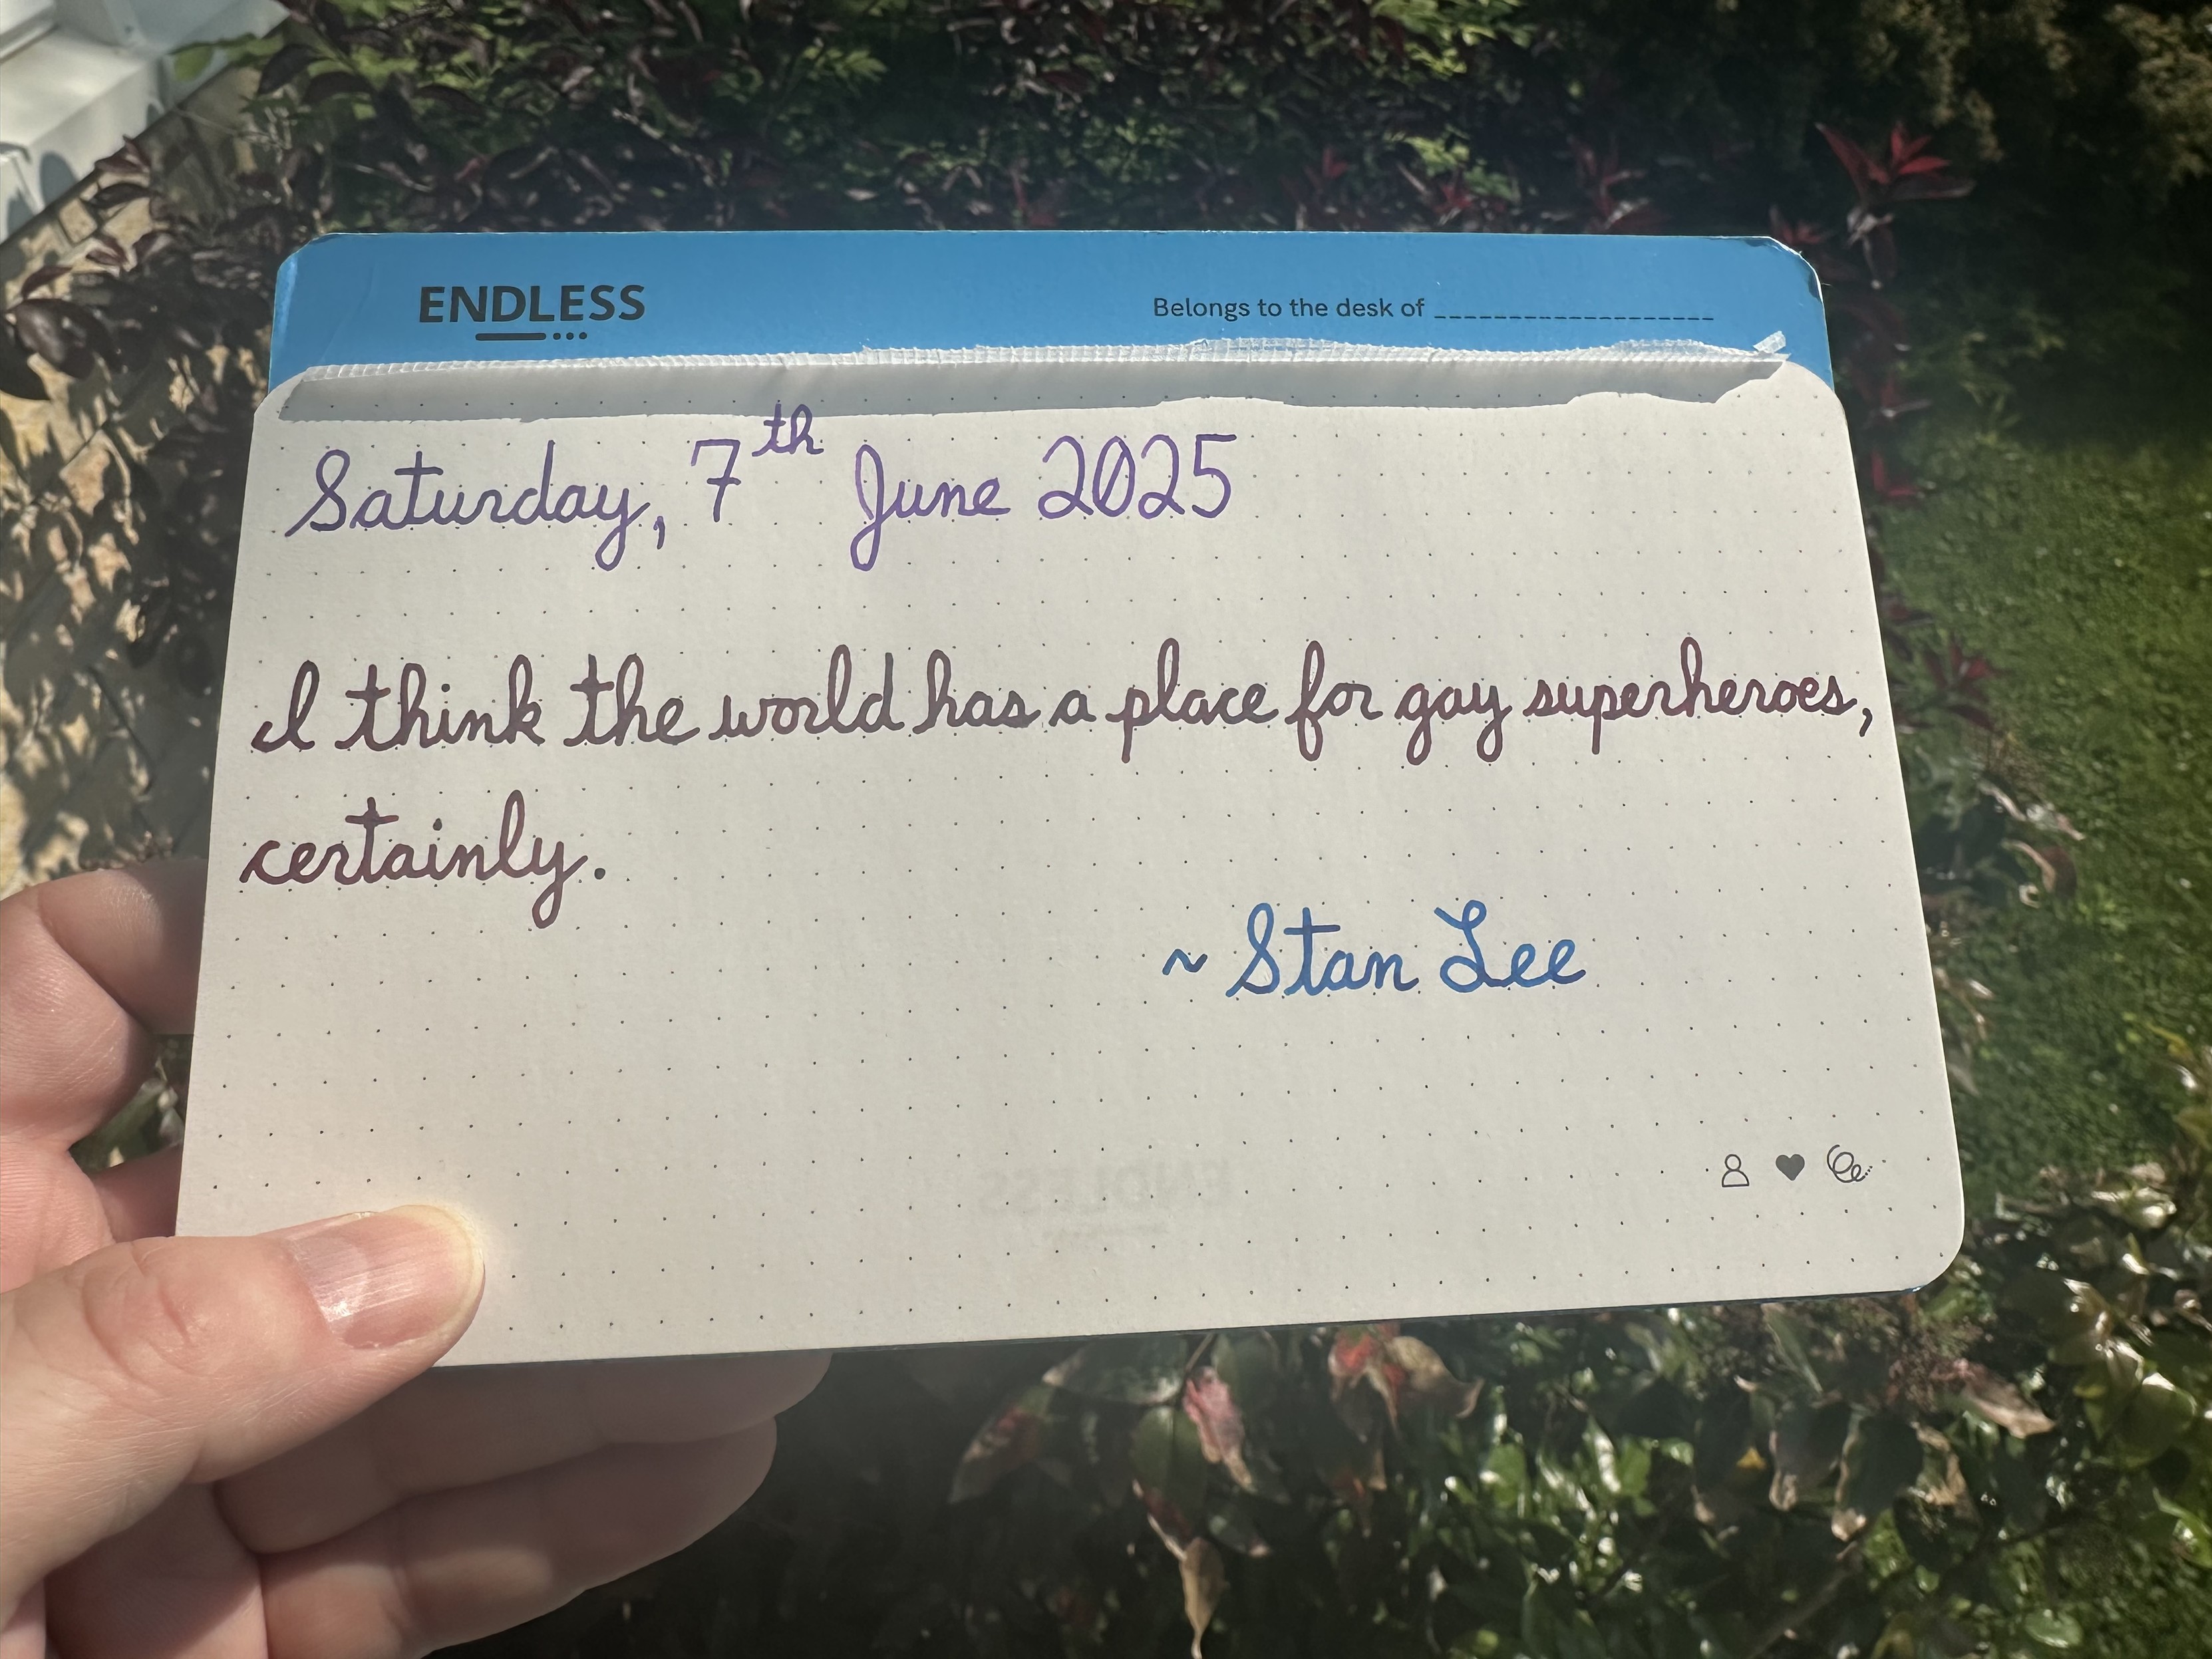 ENDLESS
Belongs to the desk of ____________________
Saturday, 7th June 2025
I think the world has a place for gay superheroes,
certainly.
~ Stan Lee
ENDLESS